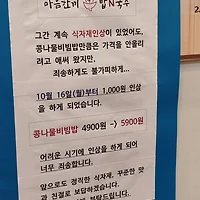 마음간게 밥N국수
그간 계속 식자재인상이 있었어도,
콩나물비빔밥만큼은 가격을 안올리
려고 애써 왔지만,
죄송하게도 불가피하게...
10월 16일(월)부터 1,000원 인상
을 하게 되었습니다.
콩나물비빔밥 4900원 -> 5900원
어려운 시기에 인상을 하게 되어
너무 죄송합니다.
앞으로도 정직한 식자재, 꾸준한 맛
과 친절로 보답하겠습니다.
부탁드립니다.
2.